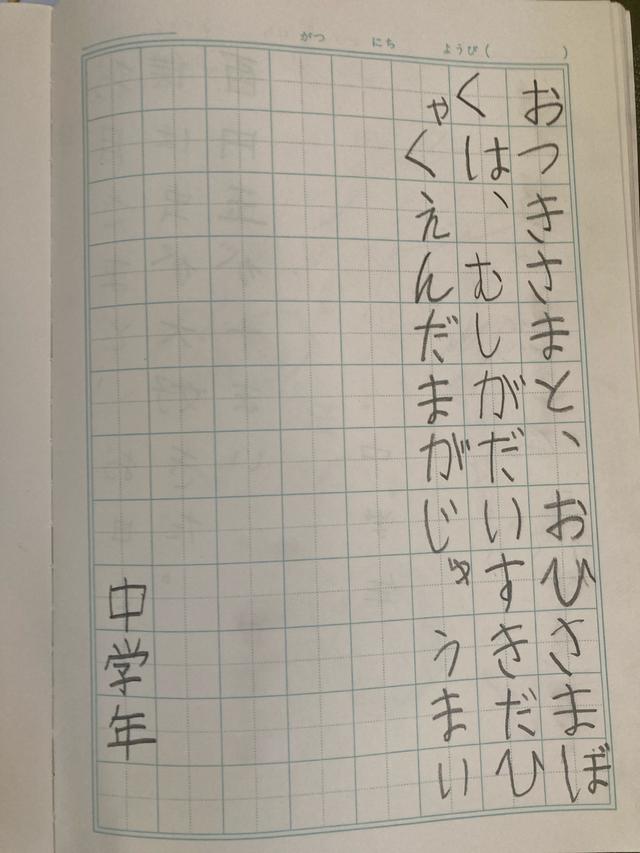 がつ にち ようび( )
おつきさまと、おひさまぼ
くは、むしがだいすきだひ
ゃくえんだまがじゅうまい
中学年